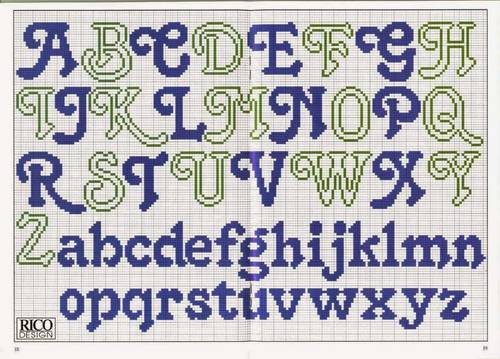 ABCDEFGH
IJKLMNOPQ
RSTUVWXY
Zabcdefghijklmn
opqrstuvwxyz
RICO
DESIGN
18 19